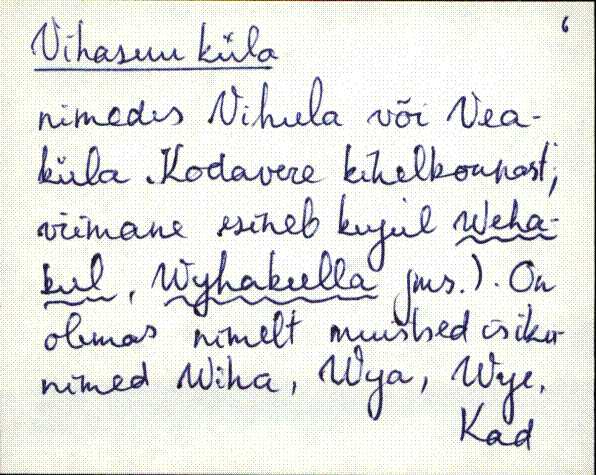 6
Vihasuu küla
nimedes Vihula või Vea-
küla Kodavere kihelkonnast;
viimane esineb kujul Weha-
kul, Wyhakulla jms.). On
olemas nimelt muistsed isiku-
nimed Wiha, Wya, Wye.
Kad